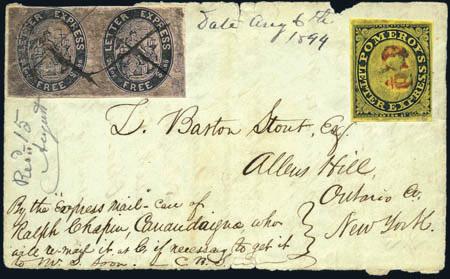 LETTER EXPRESS
FREE
LETTER EXPRESS
FREE
Date Aug 6th
1844
POMEROY'S
LETTER EXPRESS
Recd 15
August
L. Barton Stout, Esq.
Allens Hill,
Ontario Co.
New York.
By the "Express Mail" - care of
Ralph Chapin, Canandaigua, who
will re-mail it at C. if necessary to get it
to Mr. S. soon.